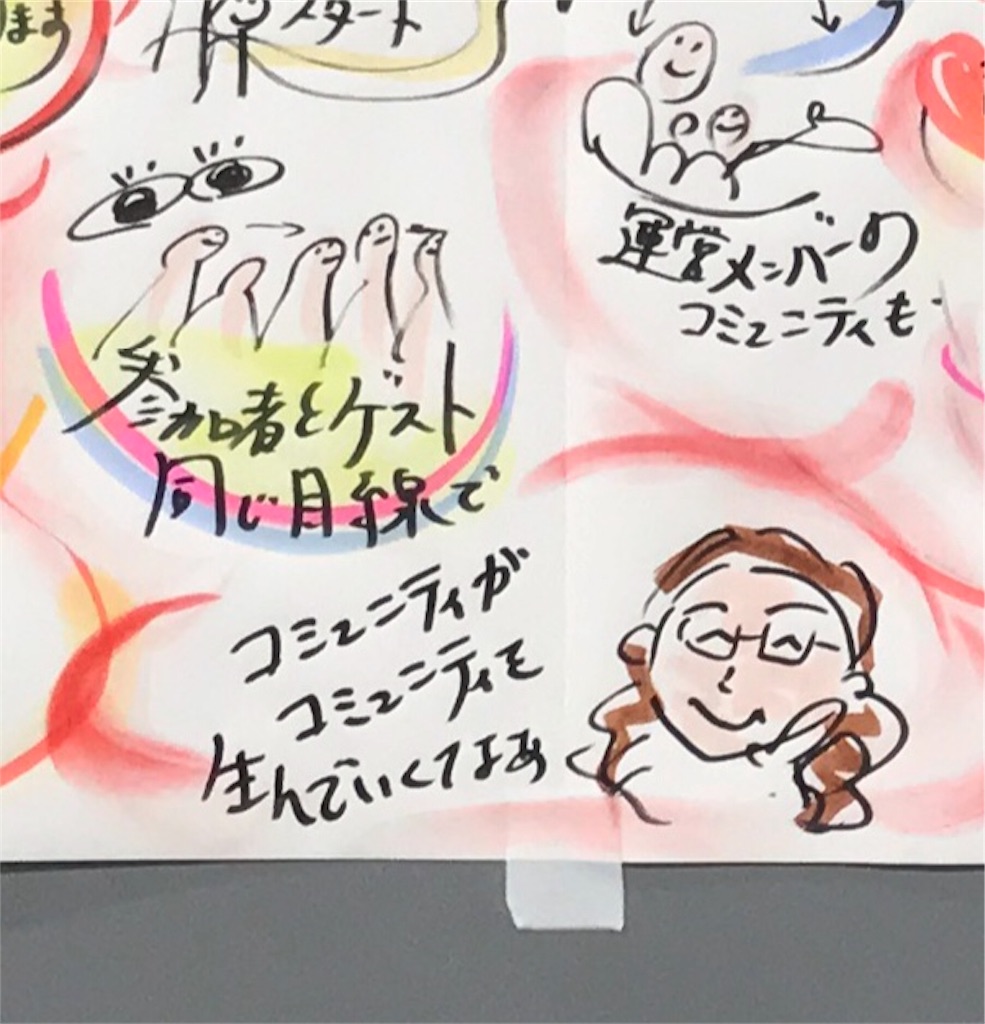 ます
スタート
運営メンバーの
コミュニティも
参加者とゲスト
同じ目線で
コミュニティが
コミュニティを
生んでいくなあ